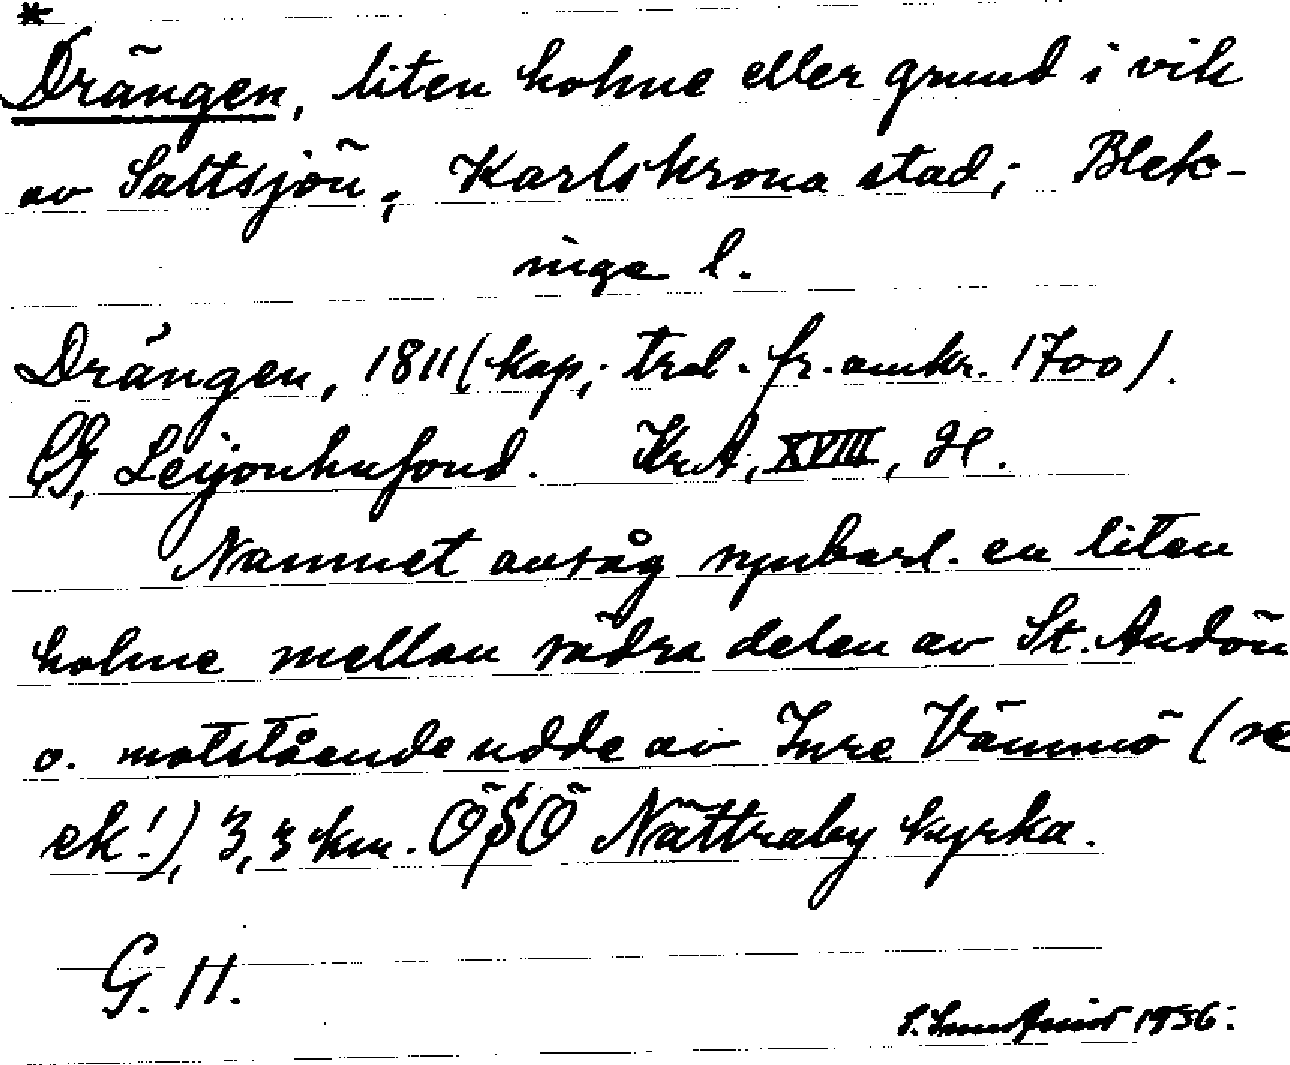 *
Drängen, liten holme eller grund i vik
av Saltsjön, Karlskrona stad, Blek-
inge l.
Drängen, 1811 (kop, trol. fr. omkr. 1700).
CG, Leijonhufvud. KrA, XVIII, H.
Namnet avsåg synbarl. en liten
holme mellan södra delen av St. Andön
o. motstående udde av Inre Vämmö (se
ek!), 3,3 km. ÖSÖ Nättraby kyrka.
G. H.
1956.